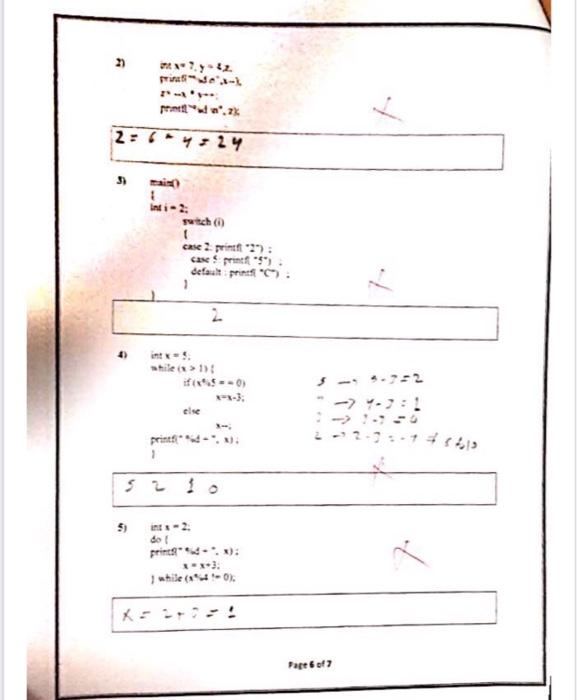 2) int x= 7, y = 4,z;
printf("%d \n",x--);
z= --x * y--;
printf("%d \n", z);
2 = 6 * 4 = 24
3) main()
{
int i = 2;
switch (i)
{
case 2: printf( "2") ;
case 5: printf( "5") ;
default : printf( "C") ;
}
}
2
4) int x = 5;
while (x > 1) {
if (x%5 = = 0)
x=x-3;
else
x--;
printf(" %d - ", x) ;
}
5 2 1 0
5) int x = 2;
do {
printf(" %d - ", x) ;
x = x+3;
} while (x%4 != 0);
Page 6 of 7